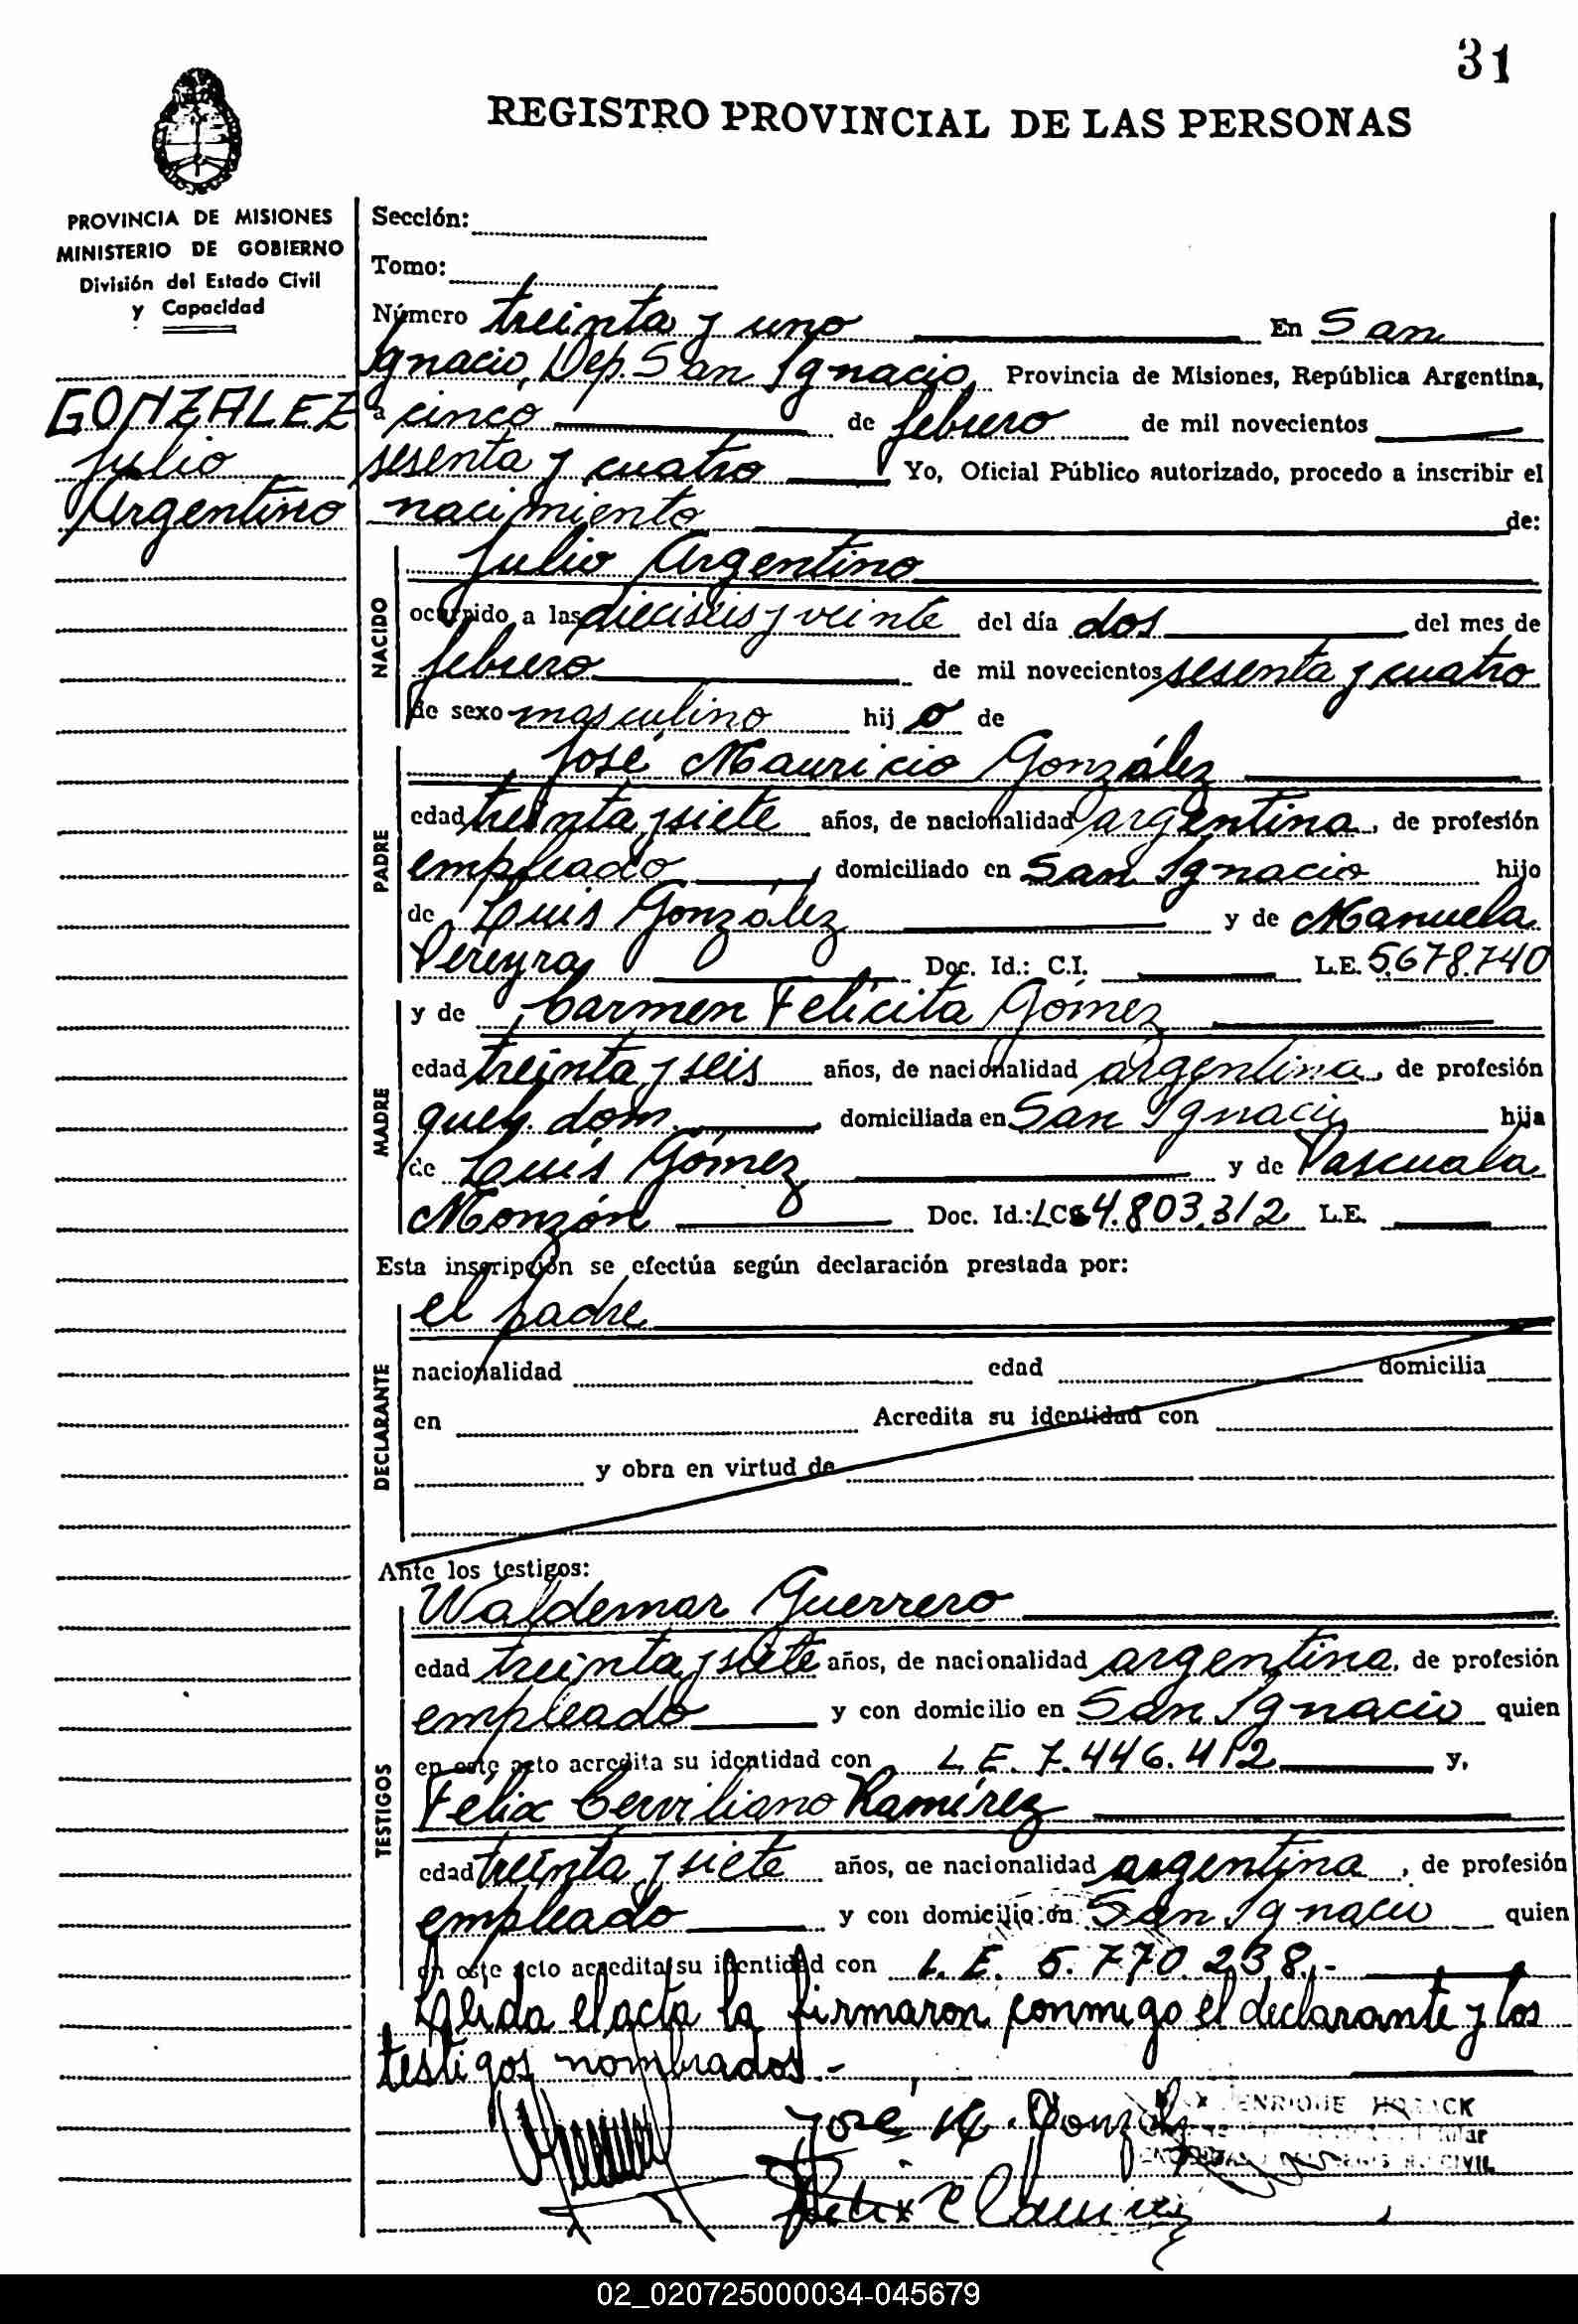 31
REGISTRO PROVINCIAL DE LAS PERSONAS
PROVINCIA DE MISIONES
MINISTERIO DE GOBIERNO
División del Estado Civil
y Capacidad
GONZALEZ
Julio
Argentino
Sección:
Tomo:
Número treinta y uno En San
Ignacio, Dep. San Ignacio, Provincia de Misiones, República Argentina,
a cinco de febrero de mil novecientos
sesenta y cuatro Yo, Oficial Público autorizado, procedo a inscribir el
nacimiento de:
NACIDO
Julio Argentino
ocurrido a las dieciseis y veinte del día dos del mes de
febrero de mil novecientos sesenta y cuatro
de sexo masculino hijo de
PADRE
José Mauricio González
edad treinta y siete años, de nacionalidad argentina, de profesión
empleado domiciliado en San Ignacio hijo
de Luis González y de Manuela
Pereyra Doc. Id.: C.I. L.E. 5.678.740
MADRE
y de Carmen Felícita Gómez
edad treinta y seis años, de nacionalidad argentina, de profesión
queh. dom. domiciliada en San Ignacio hija
de Luis Gómez y de Pascuala
Monzón Doc. Id.: LC 4.803.312 L.E.
Esta inscripción se efectúa según declaración prestada por:
DECLARANTE
el padre
nacionalidad edad domicilia
en Acredita su identidad con
y obra en virtud de
Ante los testigos:
TESTIGOS
Waldemar Guerrero
edad treinta y siete años, de nacionalidad argentina, de profesión
empleado y con domicilio en San Ignacio quien
en este acto acredita su identidad con L E. 7.446.412 y,
Félix Cerviliano Ramírez
edad treinta y siete años, de nacionalidad argentina, de profesión
empleado y con domicilio en San Ignacio quien
en este acto acredita su identidad con L. E. 5.770.238.-
Leida el acta la firmaron conmigo el declarante y los
testigos nombrados.-
José M. Gonzál
ENRIQUE
CIVIL
Félix C Ramirez
02_020725000034-045679